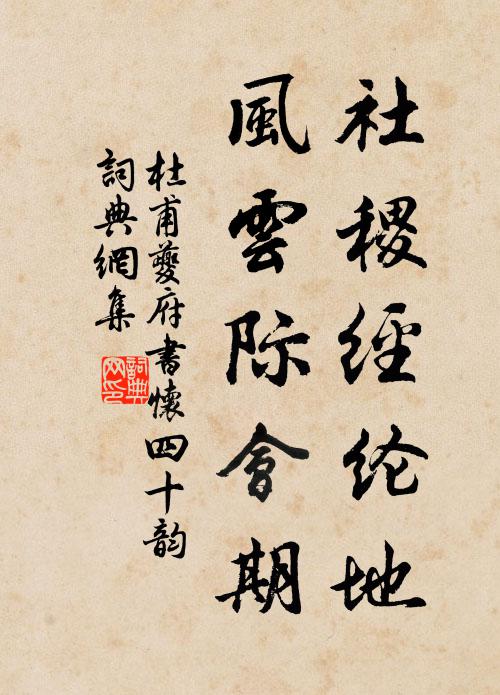 社稷經纶地
風雲际會期
杜甫夔府書懷四十韵
詞典網集
詞典网印